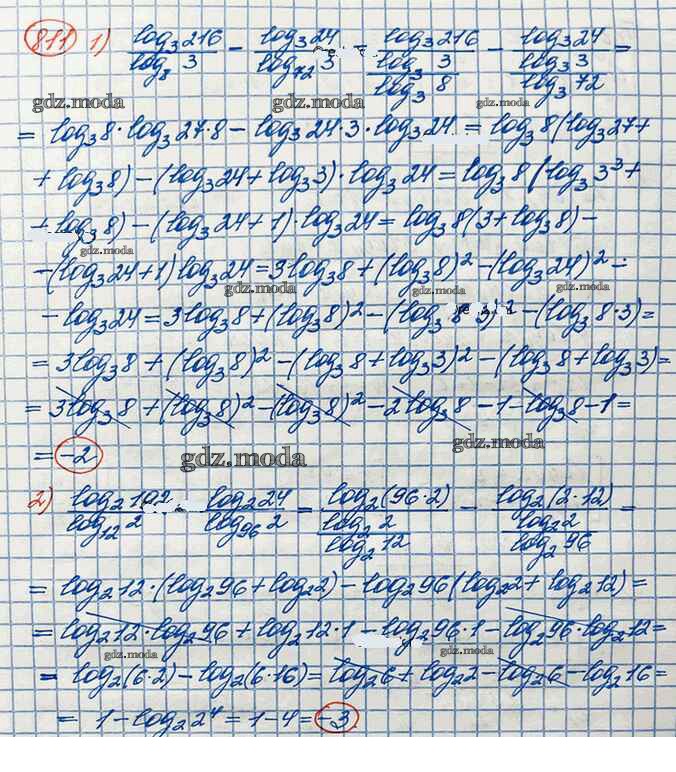 811 1) log₃216/log₈3 − log₃24/log₇₂3 = log₃216/(log₃3/log₃8) − log₃24/(log₃3/log₃72) =
gdz.moda gdz.moda gdz.moda
= log₃8·log₃27·8 − log₃24·3·log₃24 = log₃8(log₃27+
+ log₃8) − (log₃24+log₃3)·log₃24 = log₃8(log₃3³+
+ log₃8) − (log₃24+1)·log₃24 = log₃8(3+log₃8) −
gdz.moda
− (log₃24+1)log₃24 = 3log₃8+(log₃8)² − (log₃24)² −
gdz.moda gdz.moda gdz.moda
− log₃24 = 3log₃8+(log₃8)² − (log₃8·3)² − (log₃8·3) =
= 3log₃8 + (log₃8)² − (log₃8+log₃3)² − (log₃8+log₃3) =
gdz.moda
= 3log₃8 + (log₃8)² − (log₃8)² − 2log₃8 − 1 − log₃8 − 1 =
= −2
gdz.moda gdz.moda
2) log₂192/log₁₂2 − log₂24/log₉₆2 = log₂(96·2)/(log₂2/log₂12) − log₂(2·12)/(log₂2/log₂96) =
= log₂12·(log₂96+log₂2) − log₂96(log₂2+log₂12) =
= log₂12·log₂96 + log₂12·1 − log₂96·1 − log₂96·log₂12 =
gdz.moda gdz.moda
= log₂(6·2) − log₂(6·16) = log₂6 + log₂2 − log₂6 − log₂16 =
= 1 − log₂2⁴ = 1 − 4 = −3